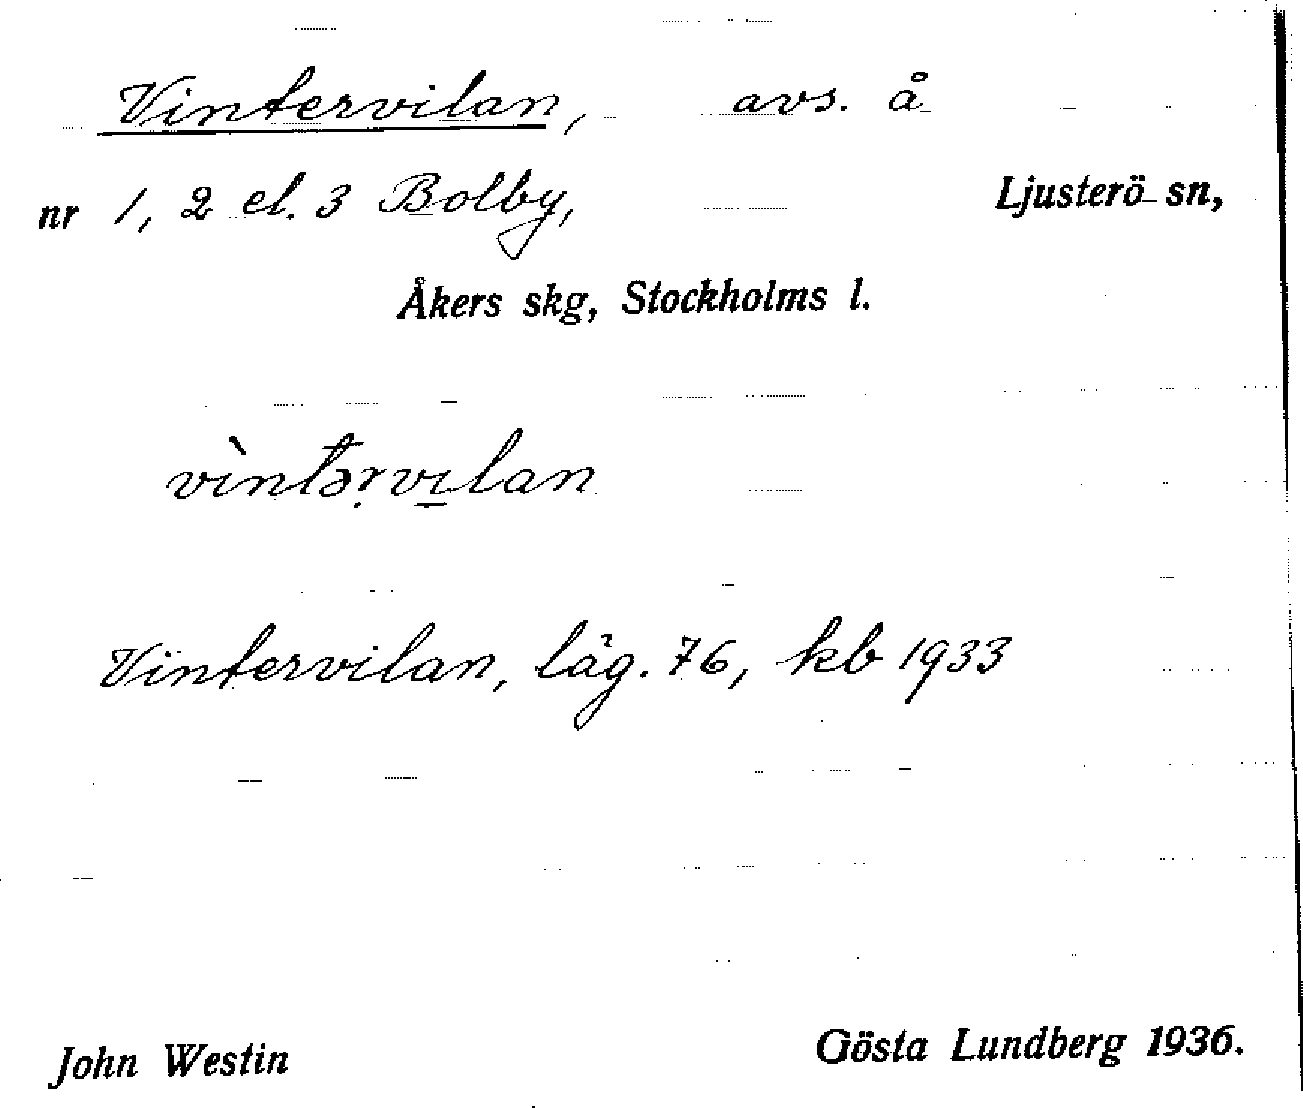 Vintervilan, avs. å
nr 1, 2 el. 3 Bolby, Ljusterö sn,
Åkers skg, Stockholms l.
vìntəṛvi̱lan
Vintervilan, läg. 76, kb 1933
John Westin Gösta Lundberg 1936.